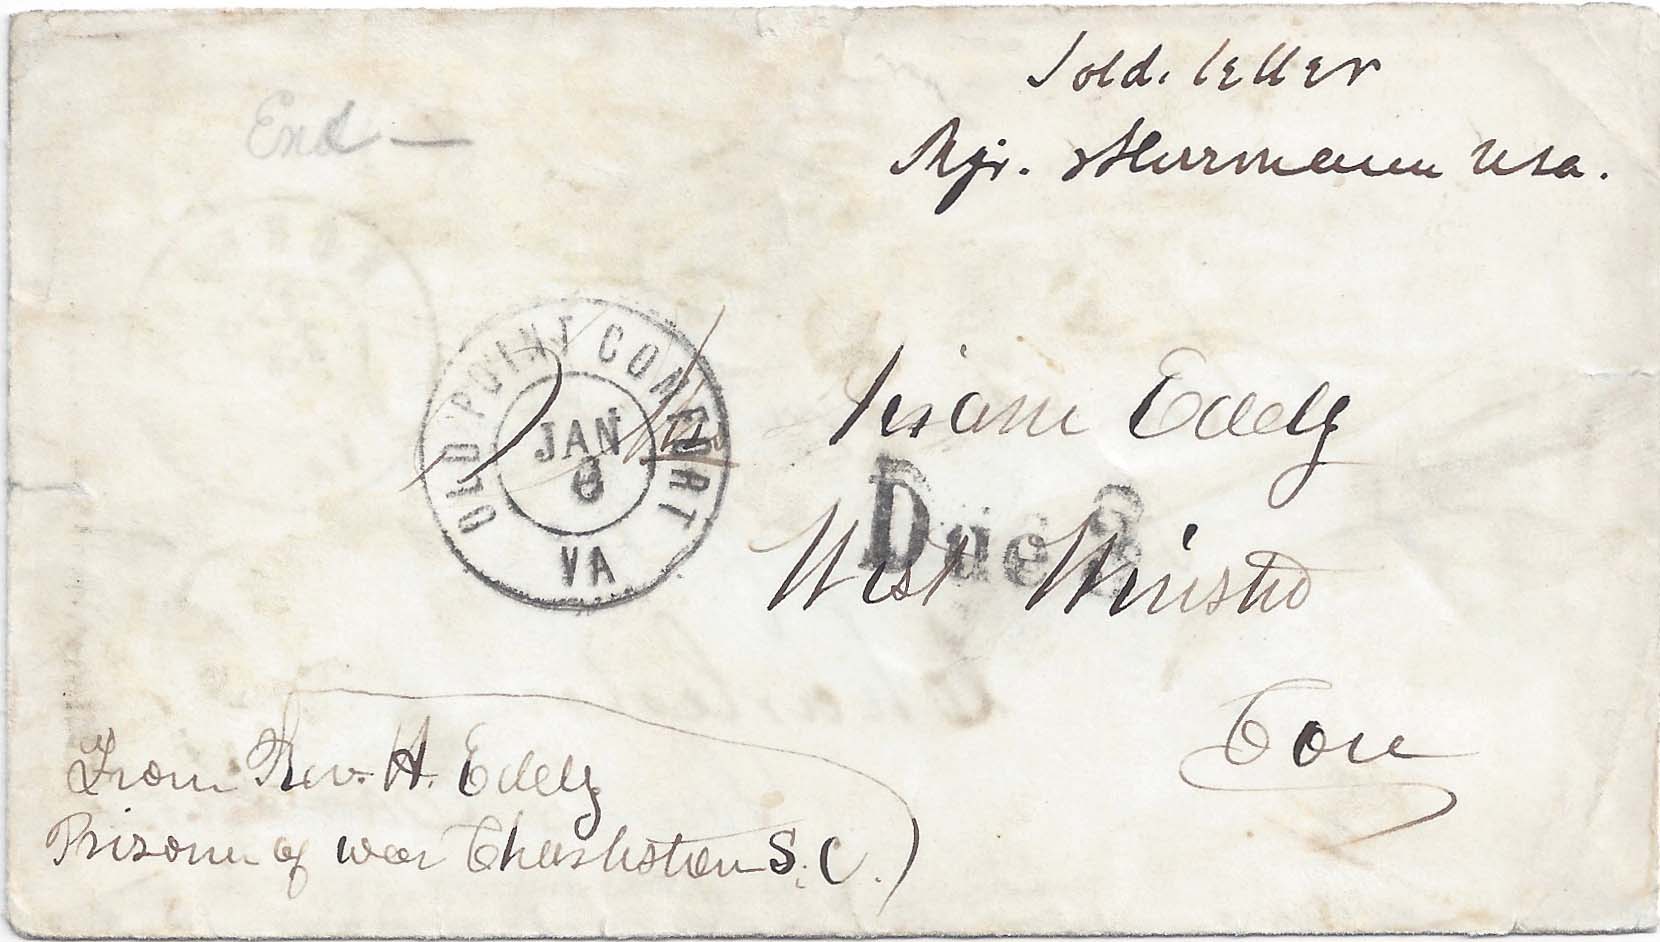 Sold. letter
Mjr. Herrmann Usa.
End
OLD POINT COMFORT
JAN
6
VA
Eddy
Due 3
West Winsted
Con
From Rev. H. Eddy
Prisoner of war Charleston S. C.)